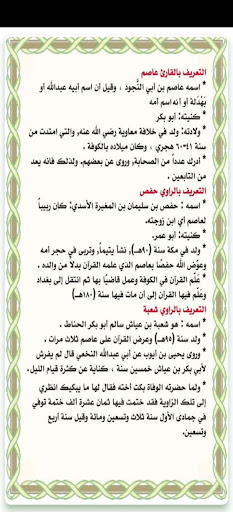 التعريف بالقارئ عاصم
* اسمه عاصم بن أبي النَّجود ، وقيل أن اسم أبيه عبدالله أو
بَهْدَلة أو أنه اسم أمه
* كنيته: أبو بكر
* ولادته: ولد في خلافة معاوية رضي الله عنه, والتي امتدت من
سنة ٤١-٦٠ هجري ، وكان ميلاده بالكوفة .
* أدرك عدداً من الصحابة, وروى عن بعضهم, ولذلك فأنه يعد
من التابعين .
التعريف بالراوي حفص
* اسمه : حفص بن سليمان بن المغيرة الأسدي: كان ربيباً
لعاصم أي ابن زوجته.
* كنيته: أبو عمر.
* ولد في مكة سنة (٩٠هـ), نشأ يتيماً, وتربى في حجر أمه
وعوَّض الله حفصًا بعاصم الذي علمه القرآن بدلا من والده .
* علَّم القرآن في الكوفة وعمل قاضيًا بها ثم انتقل إلى بغداد
وعلَّم فيها القرآن إلى أن مات فيها سنة (١٨٠هـ)
التعريف بالراوي شعبة
* اسمه : هو شعبة بن عياش سالم أبو بكر الحناط .
* ولد سنة (٩٥هـ) وعرض القرآن على عاصم ثلاث مرات .
* وروى يحيى بن أيوب عن أبي عبدالله النخعي قال لم يفرش
لأبي بكر بن عياش خمسين سنة . كناية عن كثرة قيام الليل.
* ولما حضرته الوفاة بكت أخته فقال لها ما يبكيك انظري
إلى تلك الزاوية فقد ختمت فيها ثمان عشرة ألف ختمة توفي
في جمادى الأول سنة ثلاث وتسعين ومائة وقيل سنة أربع
وتسعين.